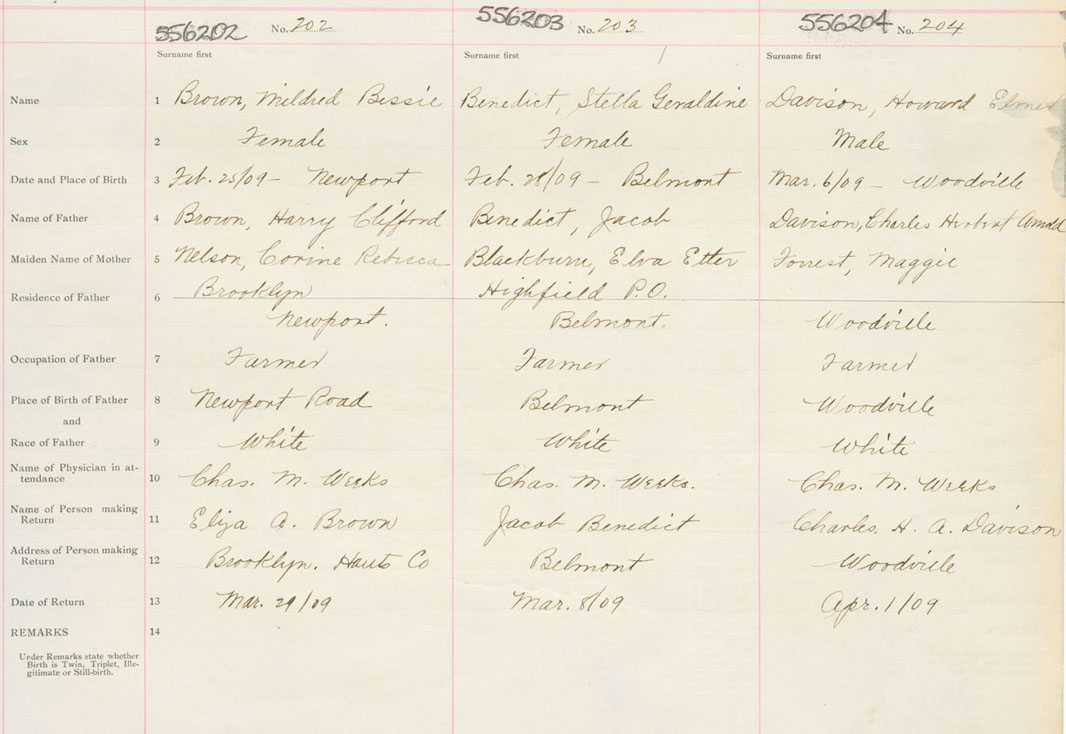 556202 No. 202 556203 No. 203 556204 No. 204
Surname first Surname first Surname first
Name 1 Brown, Mildred Bessie Benedict, Stella Geraldine Davison, Howard Elmer
Sex 2 Female Female Male
Date and Place of Birth 3 Feb. 25/09 - Newport Feb. 28/09 - Belmont Mar. 6/09 - Woodville
Name of Father 4 Brown, Harry Clifford Benedict, Jacob Davison, Charles Herbert Arnold
Maiden Name of Mother 5 Nelson, Corine Rebecca Blackburn, Elva Etter Forrest, Maggie
Residence of Father 6 Brooklyn Highfield P.O.
Newport. Belmont. Woodville
Occupation of Father 7 Farmer Farmer Farmer
Place of Birth of Father 8 Newport Road Belmont Woodville
and
Race of Father 9 White White White
Name of Physician in at-
tendance 10 Chas. M. Weeks Chas. M. Weeks. Chas. M. Weeks
Name of Person making
Return 11 Eliza A. Brown Jacob Benedict Charles. H. A. Davison
Address of Person making
Return 12 Brooklyn. Hants Co Belmont Woodville
Date of Return 13 Mar. 29/09 Mar. 8/09 Apr. 1/09
REMARKS 14
Under Remarks state whether
Birth is Twin, Triplet, Ille-
gitimate or Still-birth.